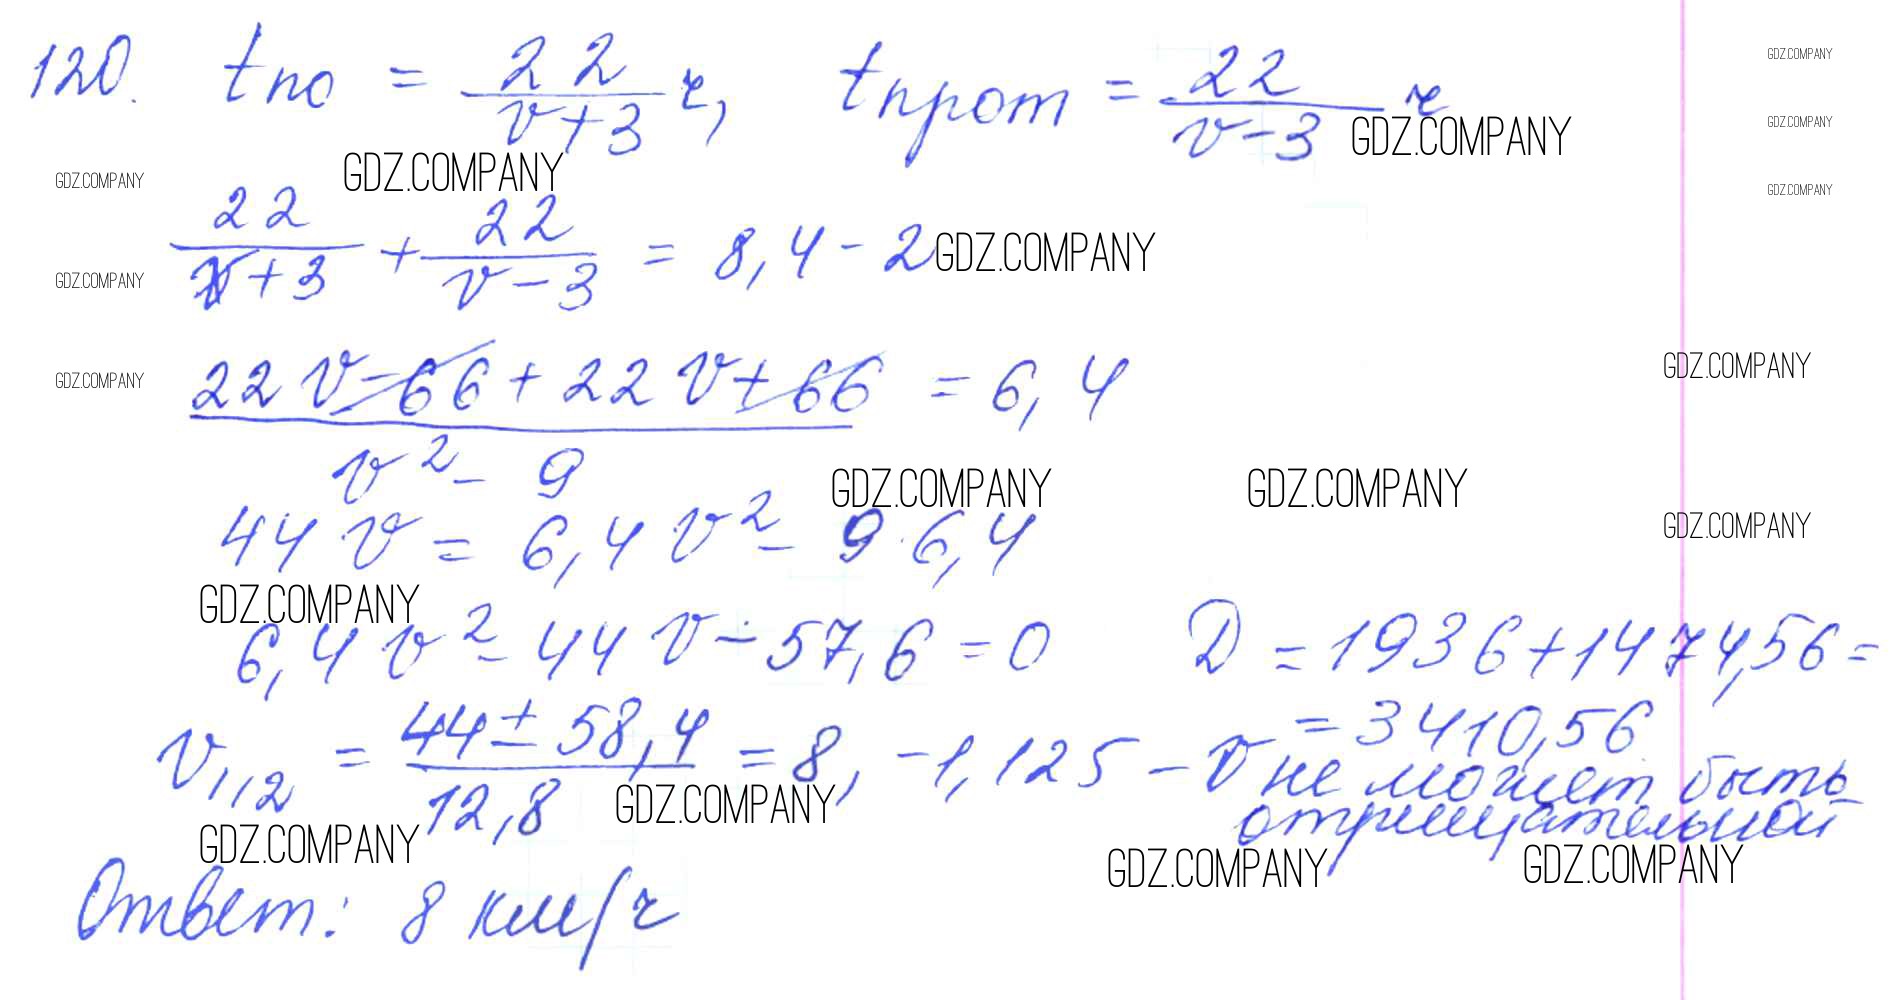 120. tпо = 22/(v+3) ч, tпрот = 22/(v-3) ч
GDZ.COMPANY
GDZ.COMPANY
GDZ.COMPANY
GDZ.COMPANY GDZ.COMPANY
GDZ.COMPANY
GDZ.COMPANY
22/(v+3) + 22/(v-3) = 8,4 - 2 GDZ.COMPANY
GDZ.COMPANY
GDZ.COMPANY
GDZ.COMPANY
(22v - 66 + 22v + 66)/(v² - 9) = 6,4
GDZ.COMPANY GDZ.COMPANY
GDZ.COMPANY
44v = 6,4v² - 9·6,4
GDZ.COMPANY
6,4v² - 44v - 57,6 = 0 D = 1936 + 1474,56 =
= 3410,56
v1,2 = (44 ± 58,4)/12,8 = 8, -1,125 - v не может быть
отрицательной
GDZ.COMPANY
GDZ.COMPANY GDZ.COMPANY GDZ.COMPANY
Ответ: 8 км/ч